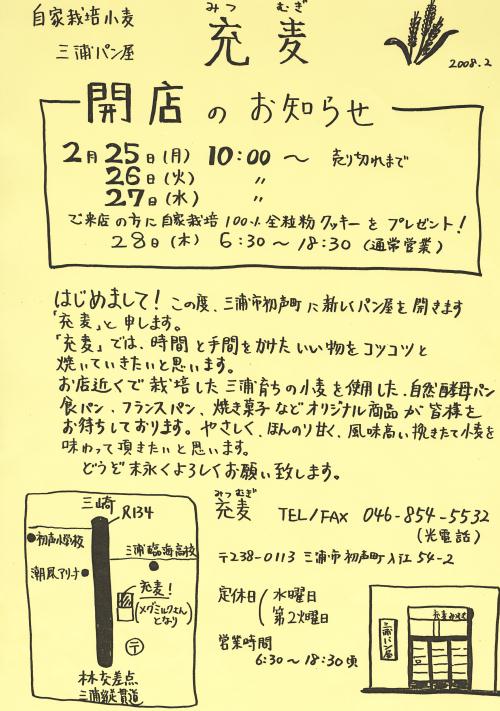 自家栽培小麦
三浦パン屋
みつ むぎ
充麦
2008.2
開店のお知らせ
2月25日(月) 10:00 〜 売り切れまで
26日(火) 〃
27日(水) 〃
ご来店の方に自家栽培100%全粒粉クッキーをプレゼント!
28日(木) 6:30〜18:30 (通常営業)
はじめまして! この度、三浦市初声町に新しくパン屋を開きます
「充麦」と申します。
「充麦」では、時間と手間をかけたいい物をコツコツと
焼いていきたいと思います。
お店近くで栽培した三浦育ちの小麦を使用した、自然酵母パン
食パン、フランスパン、焼き菓子などオリジナル商品が皆様を
お待ちしております。やさしく、ほんのり甘く、風味高い挽きたて小麦を
味わって頂きたいと思います。
どうぞ末永くよろしくお願い致します。
三崎
R134
初声小学校
三浦臨海高校
潮風アリーナ
充麦!
(メグミルクさんとなり)
〒
林交差点
三浦縦貫道
みつむぎ
充麦 TEL/FAX 046-854-5532
(光電話)
〒238-0113 三浦市初声町入江54-2
定休日 ( 水曜日
第2火曜日
営業時間
6:30〜18:30頃
充麦みつむぎ
三浦パン屋